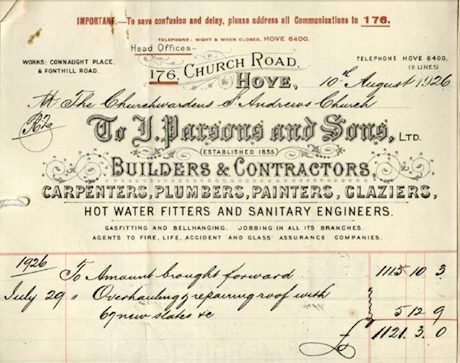 IMPORTANT.—To save confusion and delay, please address all Communications to 176.
TELEPHONE: NIGHT & WHEN CLOSED, HOVE 6400.
Head Offices—
WORKS: CONNAUGHT PLACE,
& FONTHILL ROAD.
176, CHURCH ROAD,
HOVE,
TELEPHONE HOVE 6400,
(2 LINES)
10th August 1926
The Churchwardens St Andrews Church
To J. Parsons and Sons, LTD.
(ESTABLISHED 1835)
BUILDERS & CONTRACTORS
CARPENTERS, PLUMBERS, PAINTERS, GLAZIERS,
HOT WATER FITTERS AND SANITARY ENGINEERS.
GASFITTING AND BELLHANGING. JOBBING IN ALL ITS BRANCHES.
AGENTS TO FIRE, LIFE, ACCIDENT AND GLASS ASSURANCE COMPANIES.
1926 To Amount brought forward 1115 10 3
July 29 " Overhauling & repairing roof with
67 new slates &c 5 12 9
£ 1121. 3. 0